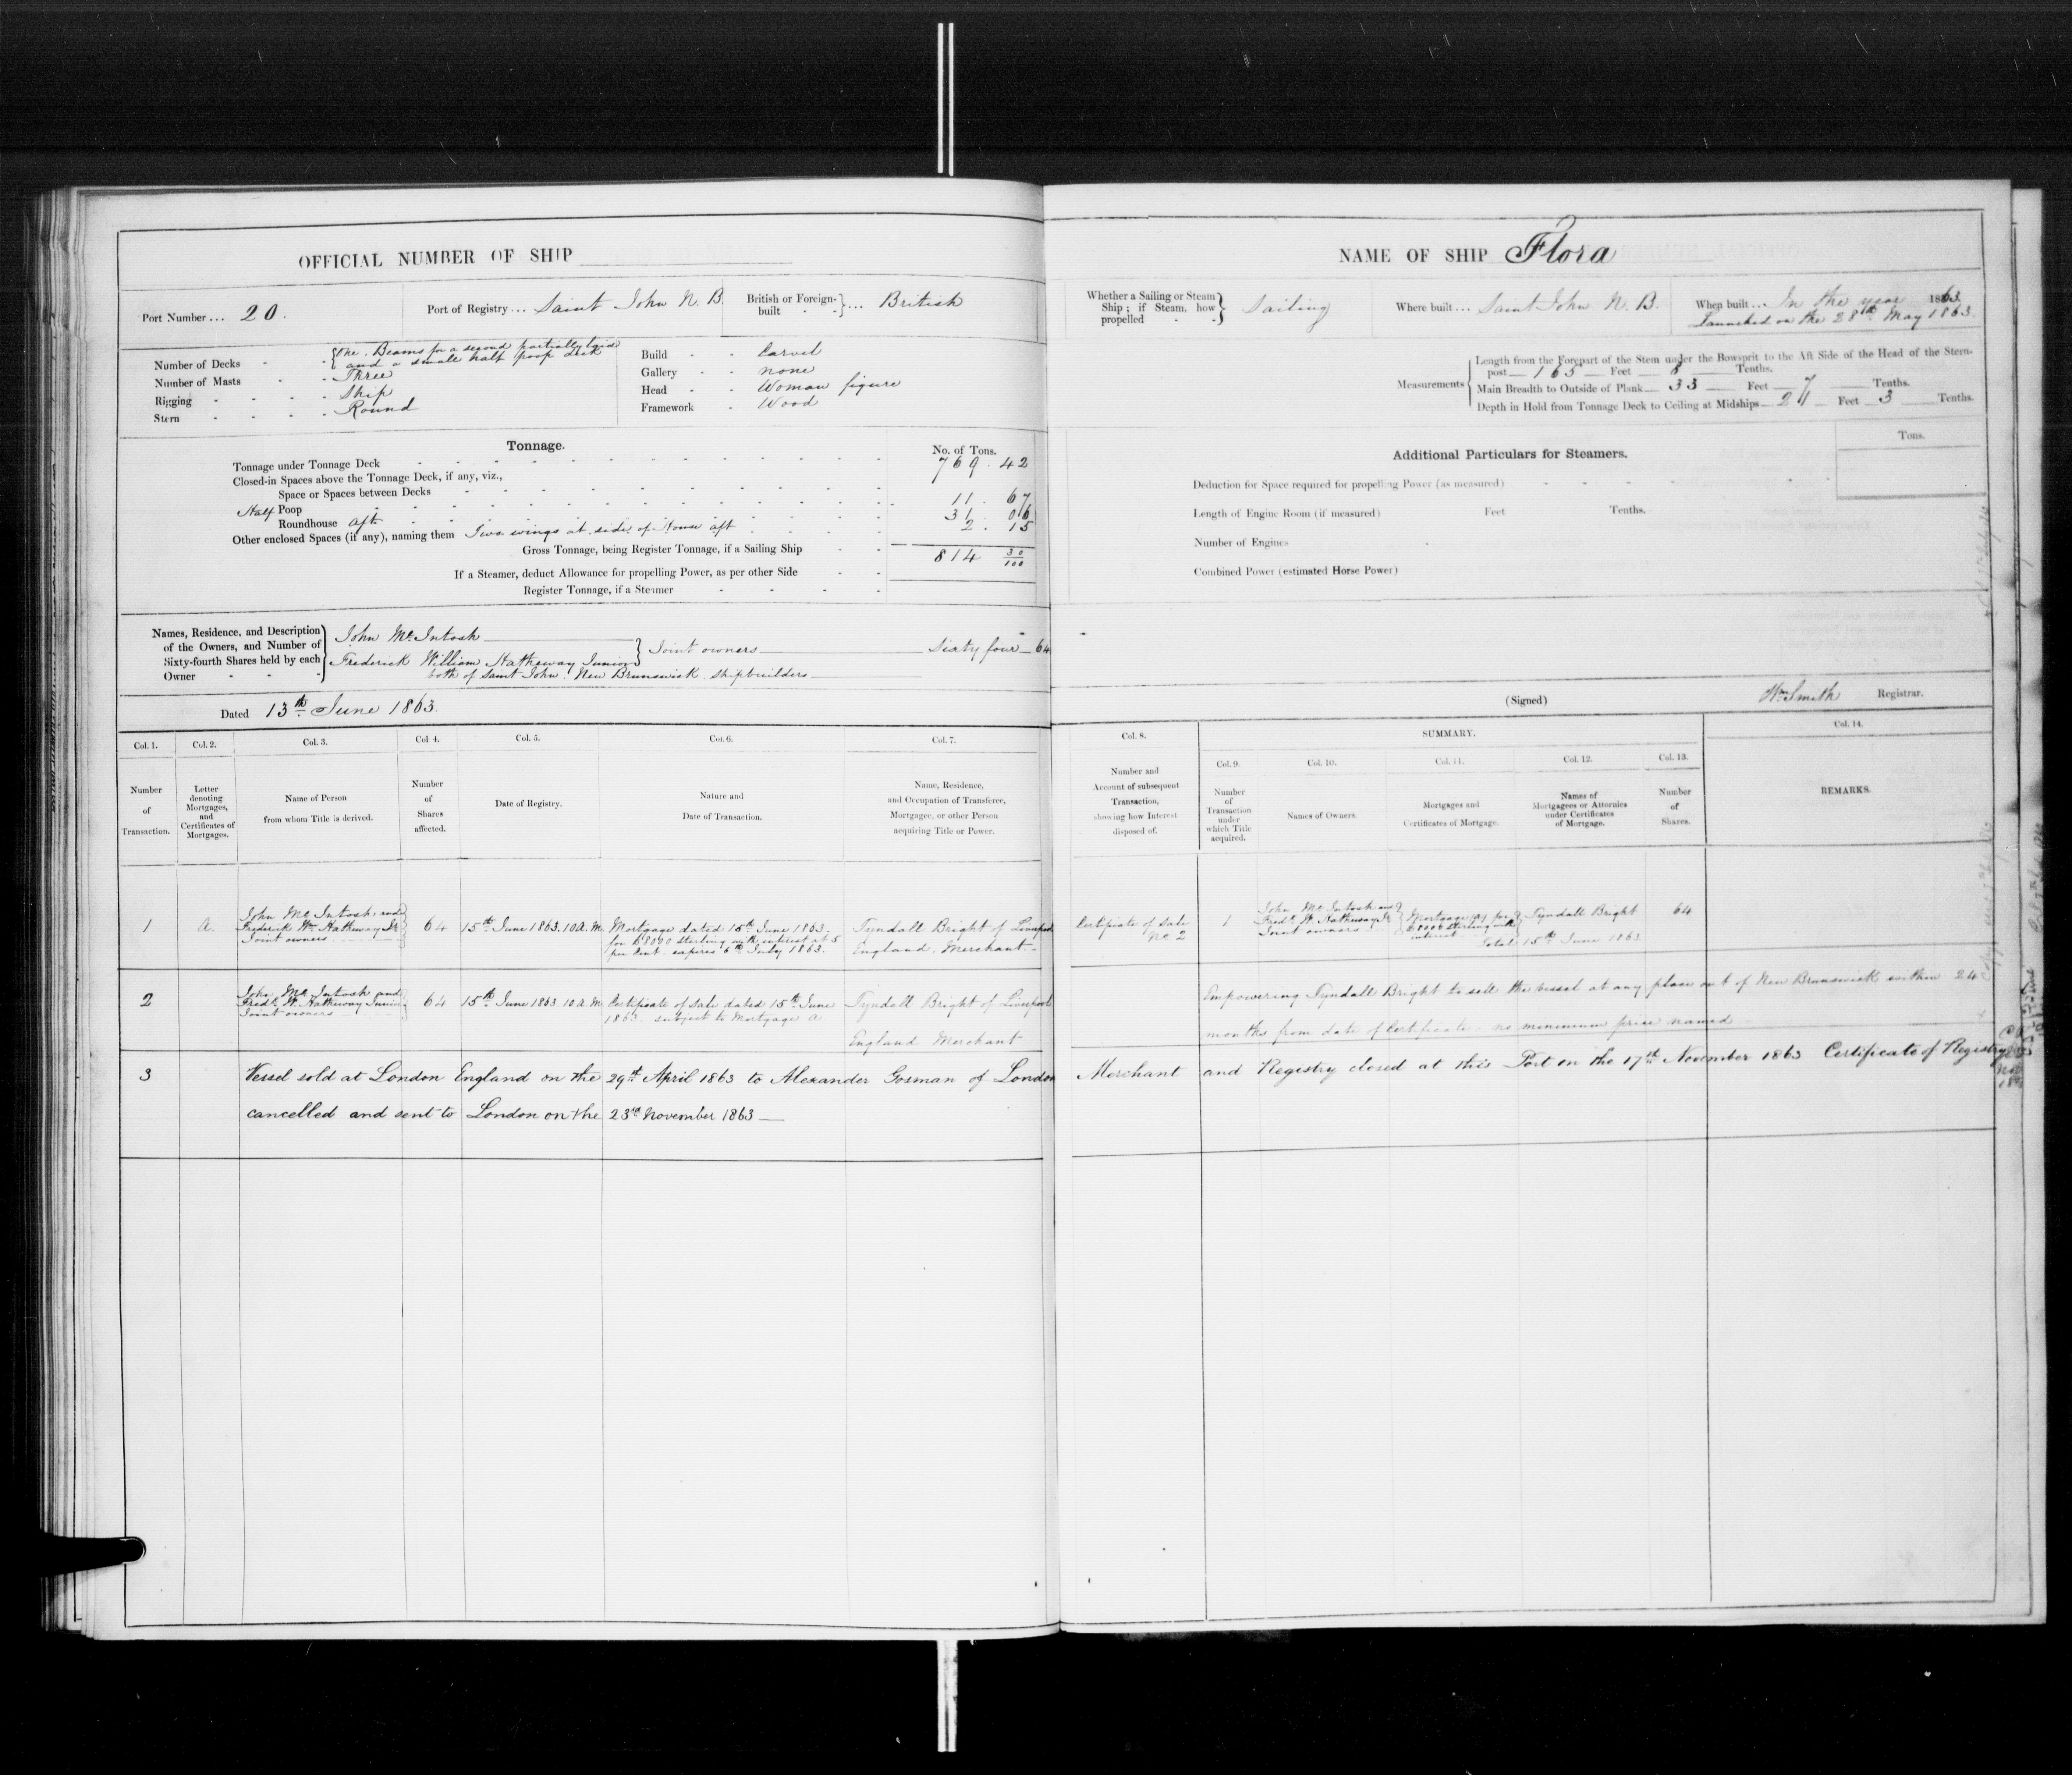 OFFICIAL NUMBER OF SHIP
Port Number ... 20.
Port of Registry ... Saint John N. B.
British or Foreign-built } ... British
Number of Decks - { One. Beams for a second partially laid
and a small half poop deck
Number of Masts - Three
Rigging - Ship
Stern - Round
Build - Carvel
Gallery - none
Head - Woman figure
Framework - Wood
Tonnage.
No. of Tons.
Tonnage under Tonnage Deck 769.42
Closed-in Spaces above the Tonnage Deck, if any, viz.,
Space or Spaces between Decks
Half Poop 11.67
Roundhouse aft 31.06
Other enclosed Spaces (if any), naming them Two wings at side of House aft 2.15
Gross Tonnage, being Register Tonnage, if a Sailing Ship 814 30/100
If a Steamer, deduct Allowance for propelling Power, as per other Side
Register Tonnage, if a Steamer
Names, Residence, and Description of the Owners, and Number of Sixty-fourth Shares held by each Owner
John McIntosh
Frederick William Hatheway Junior } Joint owners Sixty four 64
both of Saint John New Brunswick Shipbuilders
Dated 13th June 1863.
Col. 1. Col. 2. Col. 3. Col. 4. Col. 5. Col. 6. Col. 7.
Number of Transaction.
Letter denoting Mortgages, and Certificates of Mortgages.
Name of Person from whom Title is derived.
Number of Shares affected.
Date of Registry.
Nature and Date of Transaction.
Name, Residence, and Occupation of Transferee, Mortgagee, or other Person acquiring Title or Power.
1
A.
John McIntosh and
Frederick Wm Hatheway Jr
Joint owners
64
15th June 1863. 10 A.M.
Mortgage dated 15th June 1863.
for £8000 sterling with interest at 5
per Cent. expires 6th July 1863.
Tyndall Bright of Liverpool
England. Merchant
2
John McIntosh and
Fredk W. Hatheway Junior
Joint owners
64
15th June 1863 10 A.M.
Certificate of Sale dated 15th June
1863. subject to Mortgage A
Tyndall Bright of Liverpool
England Merchant
3
Vessel sold at London England on the 29th April 1863 to Alexander Gosman of London
cancelled and sent to London on the 23rd November 1863
NAME OF SHIP Flora
Whether a Sailing or Steam Ship; if Steam, how propelled } Sailing
Where built ... Saint John N. B.
When built ... In the year 1863.
Launched on the 28th May 1863.
Measurements
Length from the Forepart of the Stem under the Bowsprit to the Aft Side of the Head of the Stern-
post 165 Feet 8 Tenths.
Main Breadth to Outside of Plank 33 Feet 7 Tenths.
Depth in Hold from Tonnage Deck to Ceiling at Midships 21 Feet 3 Tenths.
Additional Particulars for Steamers.
Tons.
Deduction for Space required for propelling Power (as measured)
Length of Engine Room (if measured) Feet Tenths.
Number of Engines
Combined Power (estimated Horse Power)
(Signed) Wm Smith Registrar.
Col. 8.
SUMMARY.
Col. 14.
Col. 9. Col. 10. Col. 11. Col. 12. Col. 13.
Number and Account of subsequent Transaction, showing how Interest disposed of.
Number of Transaction under which Title acquired.
Names of Owners.
Mortgages and Certificates of Mortgage.
Names of Mortgagees or Attornies under Certificates of Mortgage.
Number of Shares.
REMARKS.
Certificate of Sale
No. 2
1
John McIntosh and
Fredk W. Hatheway Jr
Joint owners
Mortgage (A) for
£8000 sterling with
interest
Tyndall Bright
64
Total 15th June 1863
Empowering Tyndall Bright to sell the vessel at any place out of New Brunswick within 24
months from date of Certificate. no minimum price named
Merchant and Registry closed at this Port on the 17th November 1863 Certificate of Registry